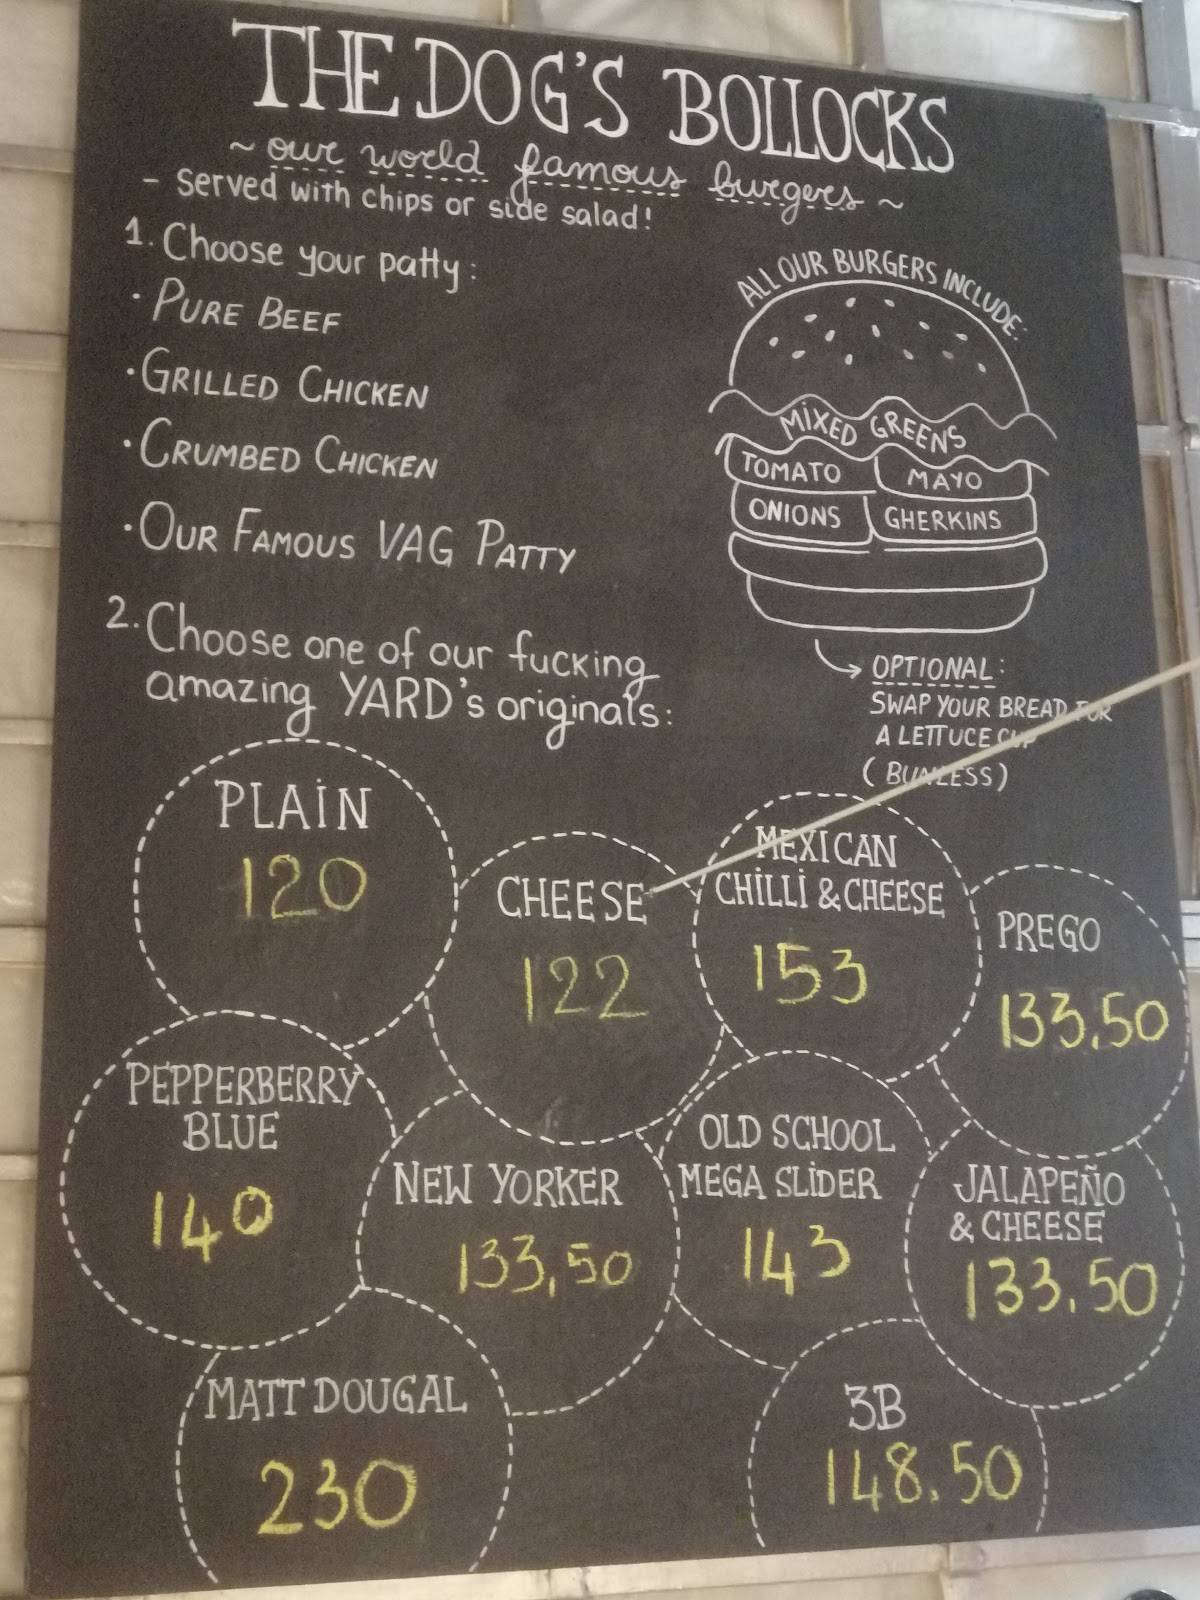 THE DOG'S BOLLOCKS
~ our world famous burgers ~
- Served with chips or side salad!
1. Choose your patty:
· PURE BEEF
· GRILLED CHICKEN
· CRUMBED CHICKEN
· OUR FAMOUS VAG PATTY
ALL OUR BURGERS INCLUDE:
MIXED GREENS
TOMATO
MAYO
ONIONS
GHERKINS
OPTIONAL:
SWAP YOUR BREAD FOR
A LETTUCE CUP
(BUNLESS)
2. Choose one of our fucking
amazing YARD's originals:
PLAIN
120
CHEESE
122
MEXICAN
CHILLI & CHEESE
153
PREGO
133.50
PEPPERBERRY
BLUE
140
NEW YORKER
133,50
OLD SCHOOL
MEGA SLIDER
143
JALAPEÑO
& CHEESE
133.50
MATT DOUGAL
230
3B
148.50